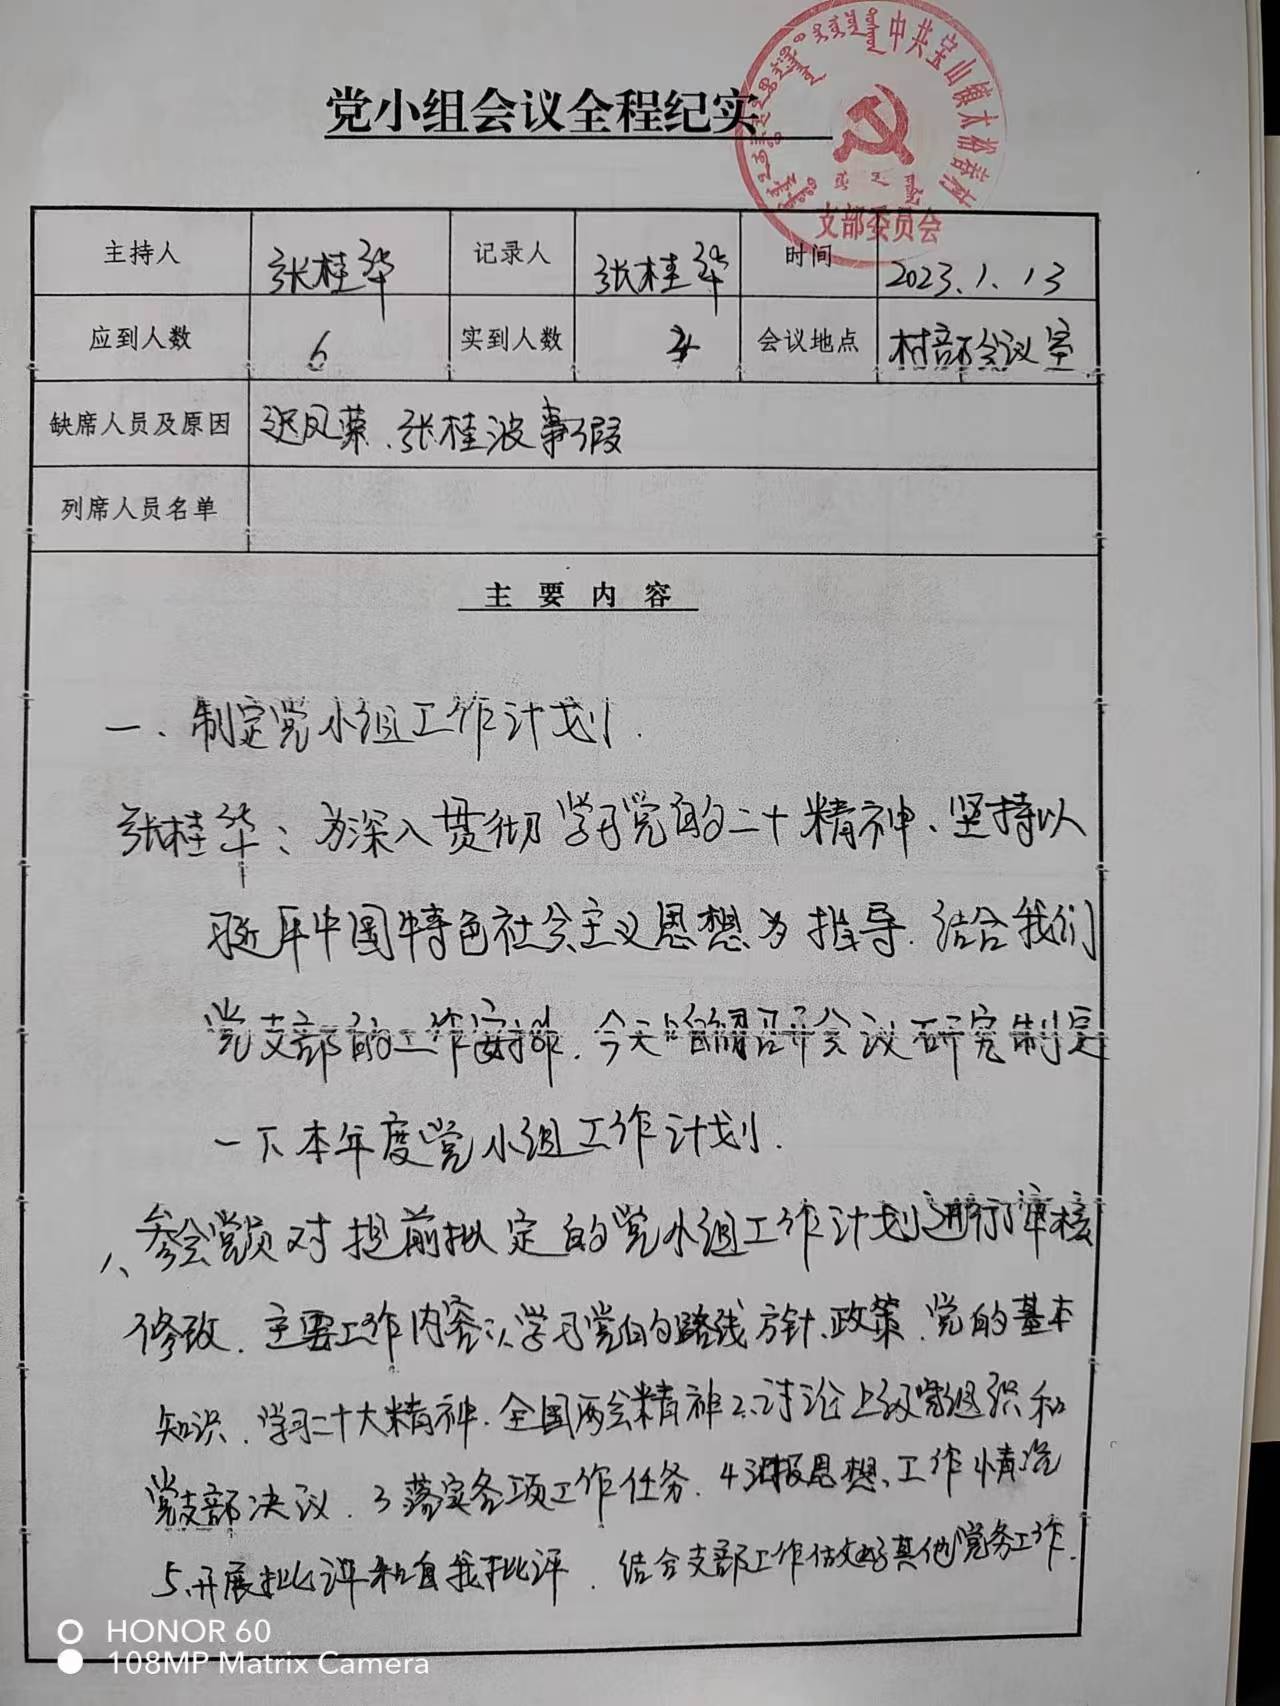 党小组会议全程纪实
中共宝山镇太
支部委员会
主持人 张桂华 记录人 张桂华 时间 2023.1.13
应到人数 6 实到人数 4 会议地点 村部会议室
缺席人员及原因 迟凤荣、张桂波事假
列席人员名单
主要内容
一、制定党小组工作计划.
张桂华：为深入贯彻学习党的二十精神、坚持以
习近平中国特色社会主义思想为指导.结合我们
党支部的工作安排.今天咱们召开会议研究制定
一下本年度党小组工作计划.
参会党员对提前拟定的党小组工作计划进行了审核
修改.主要工作内容:1、学习党的路线方针、政策、党的基本
知识、学习二十大精神.全国两会精神2、讨论上级党组织和
党支部决议.3落实各项工作任务.4汇报思想、工作情况
5、开展批评和自我批评.结合支部工作做好其他党务工作.
HONOR 60
108MP Matrix Camera